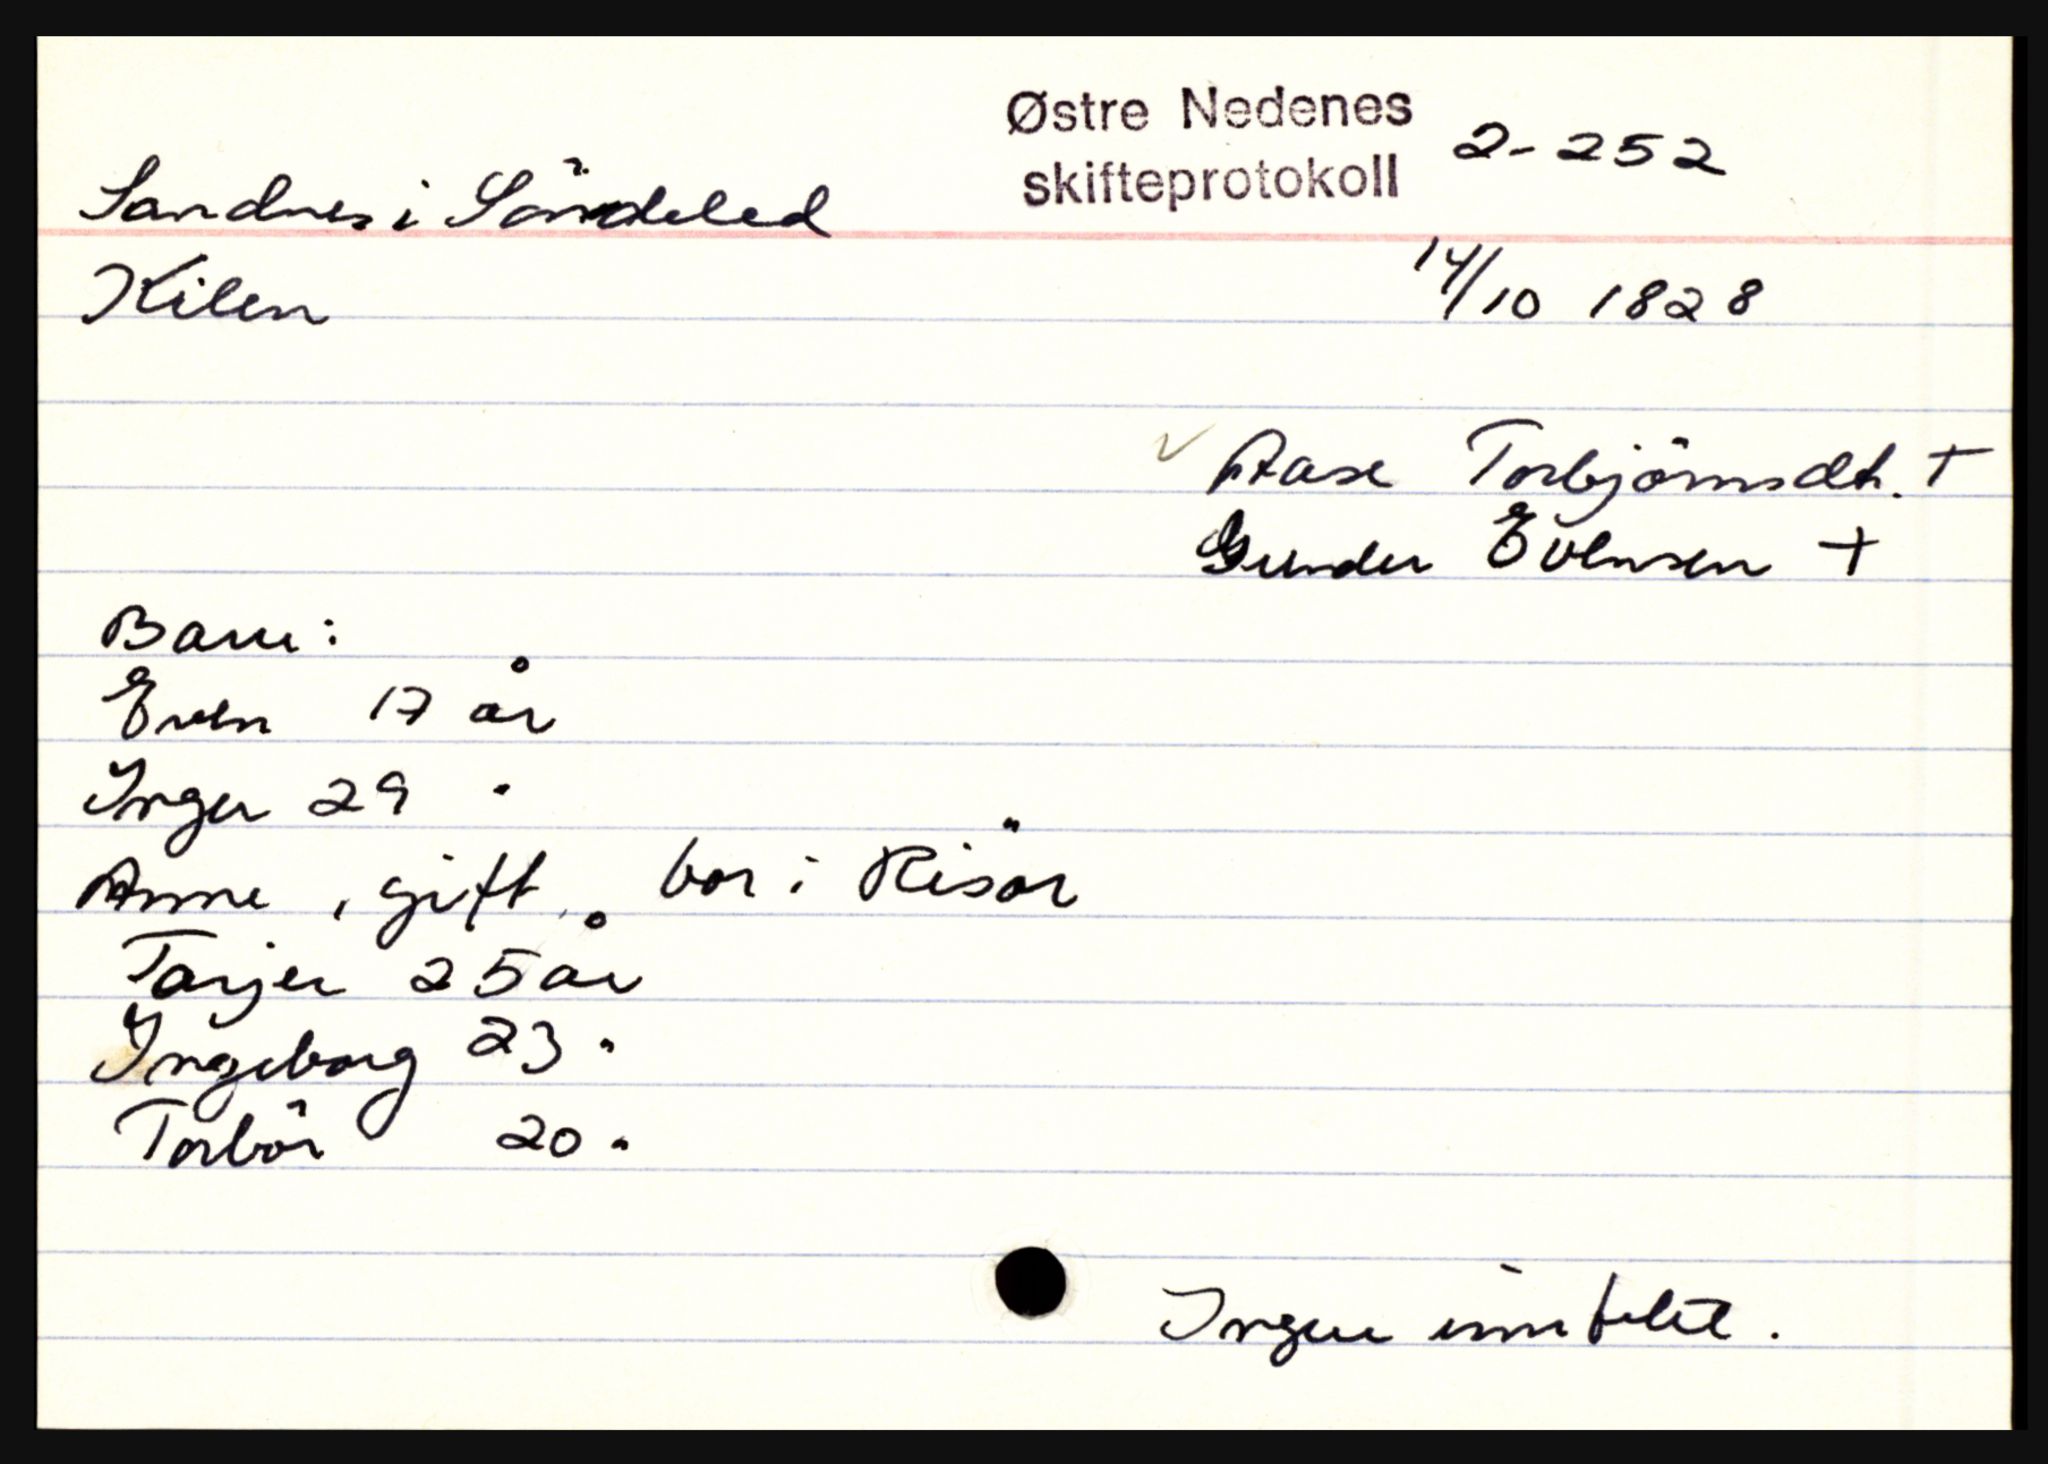 Østre Nedenes
skifteprotokoll 2-252
Sandnes i Söndeled
Kilen 14/10 1828
✓ Aase Torbjörnsdtr. +
Gunder Evensen +
Barn:
Even 17 år
Inger 29 "
Anne, gift, bor i Risör
Tarjer 25 år
Ingeborg 23 "
Torbör 20 "
Ingen